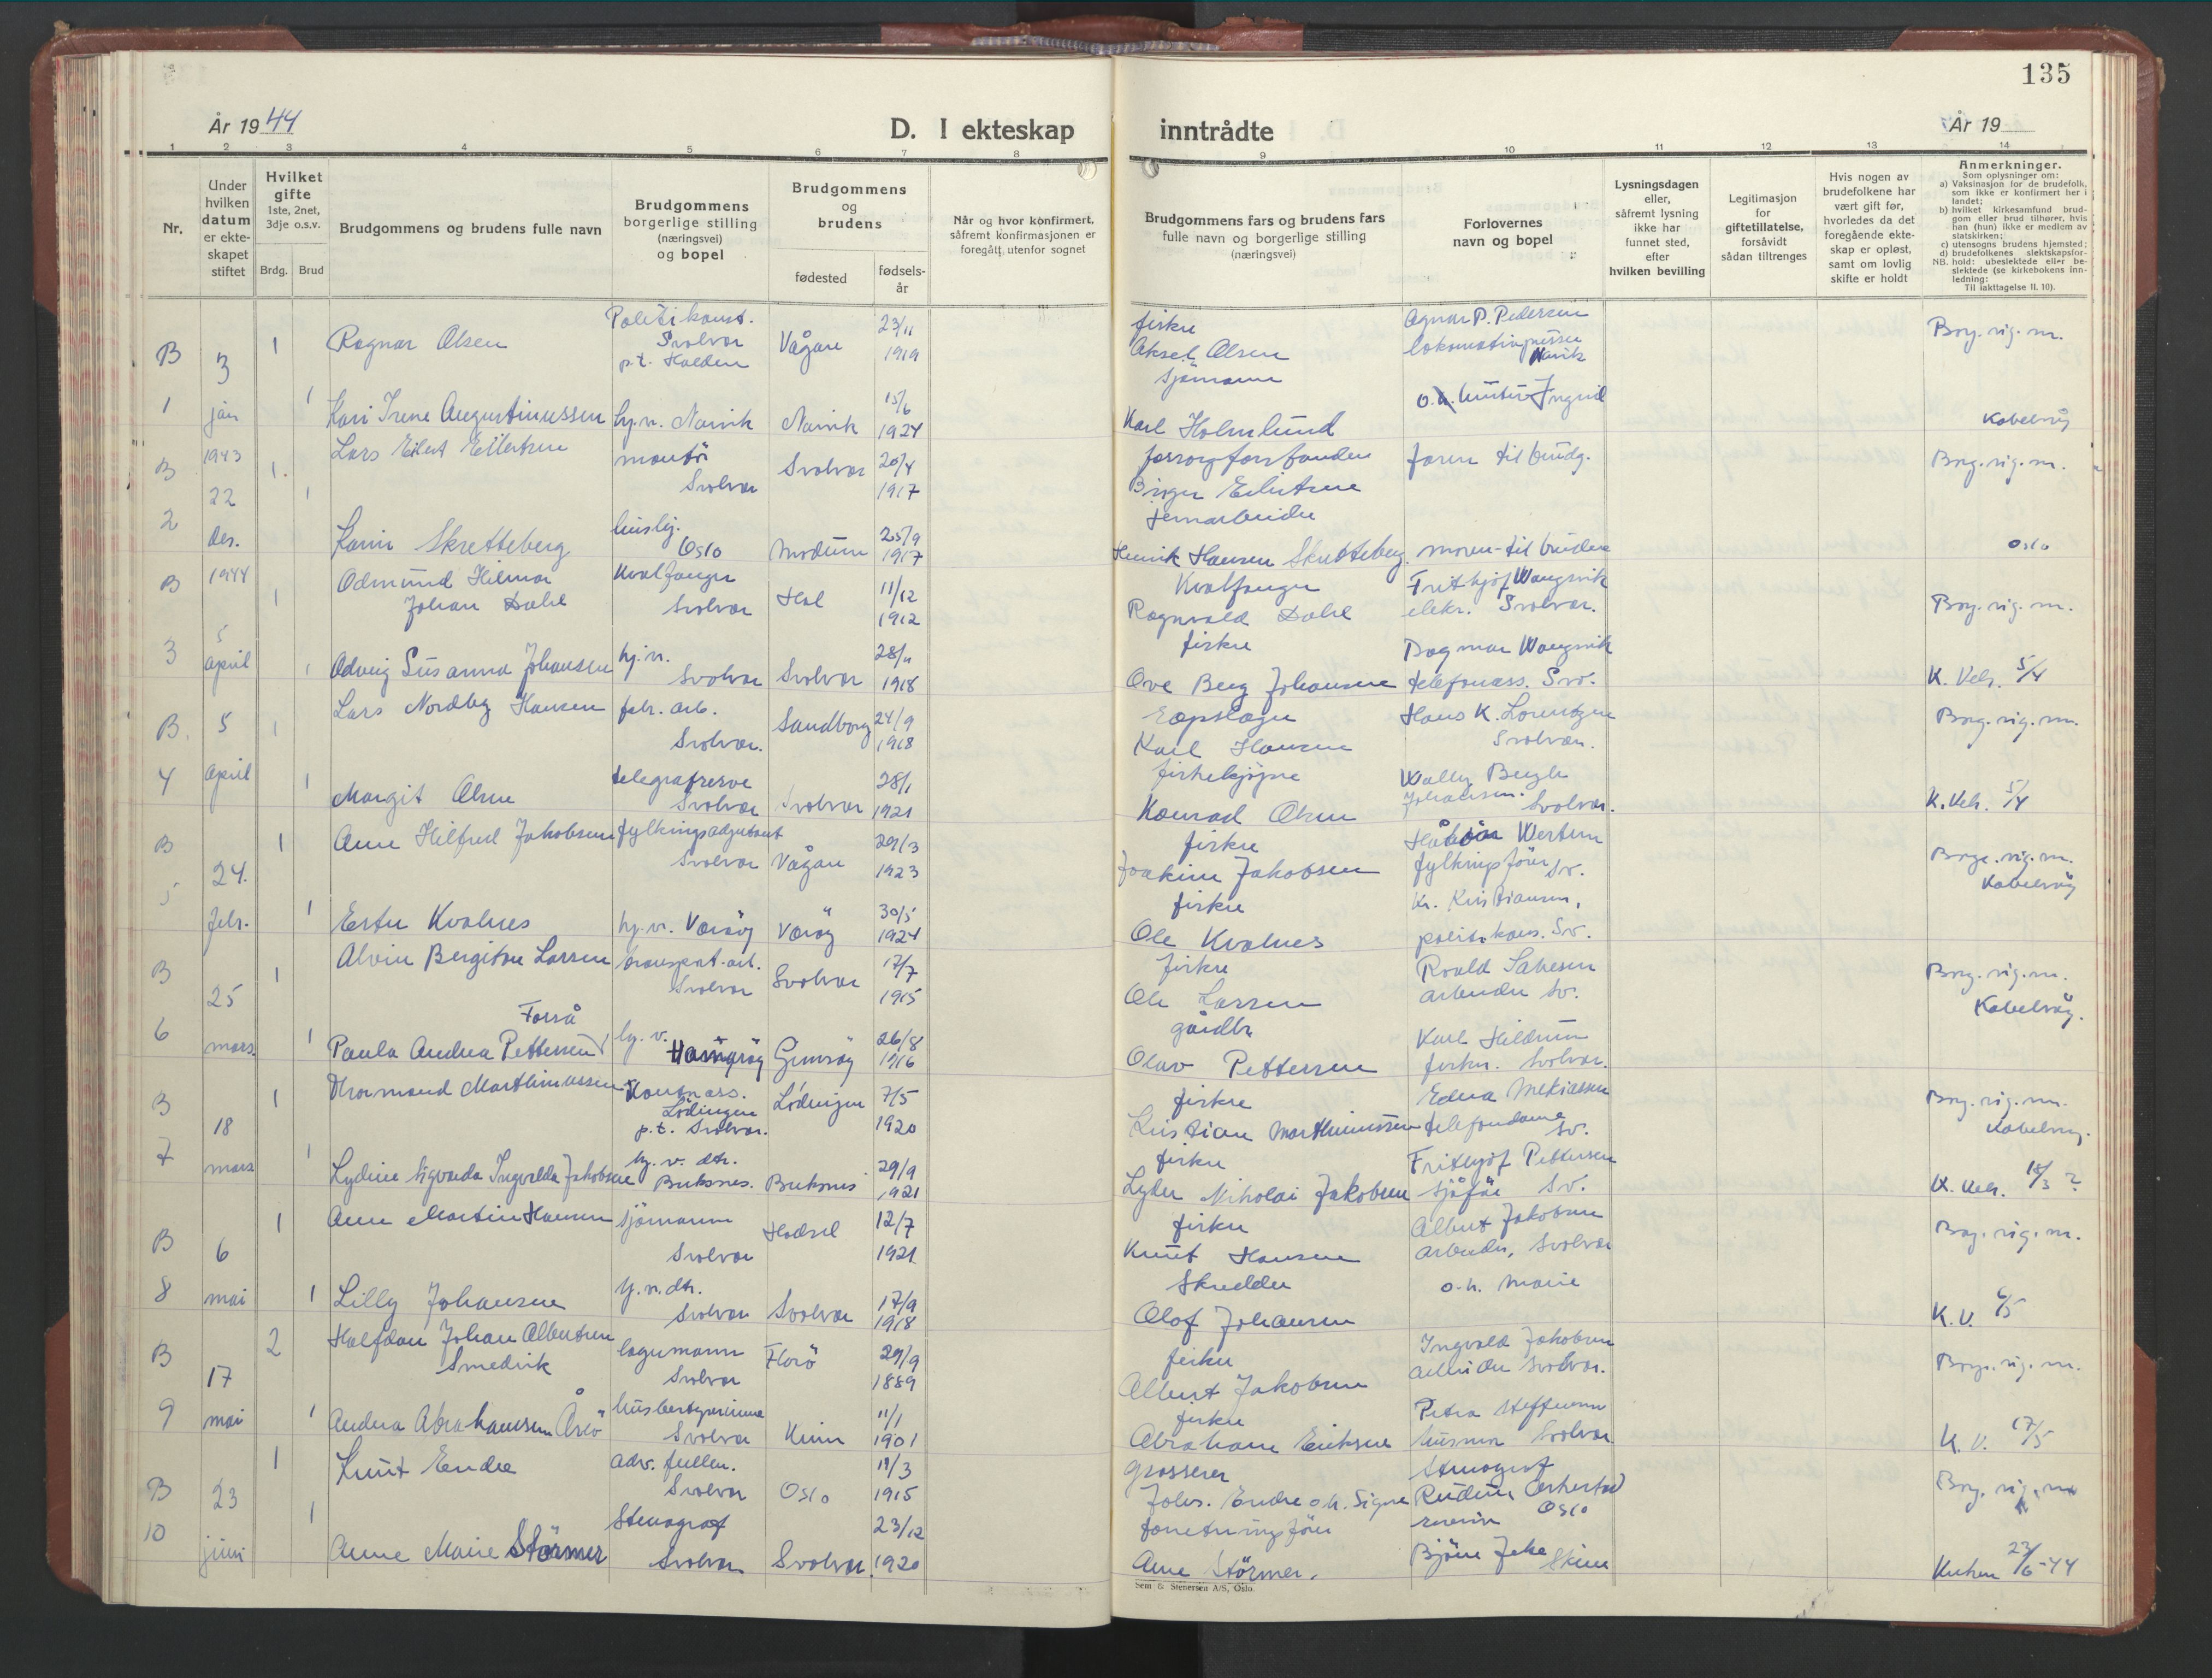 135
År 1944
D. I ekteskap inntrådte
År 19
1 2 3 4 5 6 7 8 9 10 11 12 13 14
Nr.
Under hvilken datum er ekteskapet stiftet
Hvilket gifte
1ste, 2net, 3dje o.s.v.
Brdg. Brud
Brudgommens og brudens fulle navn
Brudgommens borgerlige stilling
(næringsvei)
og bopel
Brudgommens og brudens
fødested
fødsels-
år
Når og hvor konfirmert,
såfremt konfirmasjonen er
foregått utenfor sognet
Brudgommens fars og brudens fars
fulle navn og borgerlige stilling
(næringsvei)
Forlovernes
navn og bopel
Lysningsdagen
eller,
såfremt lysning
ikke har
funnet sted,
efter
hvilken bevilling
Legitimasjon
for
giftetillatelse,
forsåvidt
sådan tiltrenges
Hvis nogen av
brudefolkene har
vært gift før,
hvorledes da det
foregående ekte-
skap er opløst,
samt om lovlig
skifte er holdt
Anmerkninger.
Som oplysninger om:
a) Vaksinasjon for de brudefolk,
som ikke er konfirmert her i
landet;
b) hvilket kirkesamfund brud-
gom eller brud tilhører, hvis
han (hun) ikke er medlem av
statskirken;
c) utensogns brudens hjemsted;
d) brudefolkenes slektskapsfor-
NB. hold: ubeslektede eller be-
slektede (se kirkebokens inn-
ledning:
Til iakttagelse II. 10).
B 1 3 jan 1
Ragnar Olsen
Politikonst.
Svolvær
p.t. Halden
Vågan 23/11 1919
fisker
Aksel Olsen
Agnar P. Pedersen
Narvik
Borg. vig. m.
1 Kari Irene Augustinussen hj.v. Narvik Narvik 15/6 1924
sjømann
Karl Holmlund
Ingrid
Kabelvåg
B 2 1943 22 des. 1
Lars Eilert Eilertsen montør Svolvær Svolvær 20/4 1917
Birger Eilertsen
faren til brudg.
Borg. vig. m.
1 Karin Skretteberg huslig. Oslo Modum 25/9 1917
jernarbeider
Henrik Hansen Skretteberg moren til bruden
Oslo
B 3 1944 5 april 1
Odmund Hilmar
Johan Dahl
Kvalfanger
Svolvær Hol 11/12 1912
Kvalfanger
Ragnvald Dahl
Frithjof Wangsvik
elekr. Svolvær.
Borg. vig. m.
1 Odveig Susanna Johansen hj.v. Svolvær Svolvær 28/11 1918
fisker
Ove Berg Johansen
Dagmar Wangsvik
telefonass. Svo.
K. Vels. 5/4
B. 4 5 april 1
Lars Nordby Hansen fabr. arb. Svolvær. Sandborg 24/9 1918
Karl Hansen
Hans K. Lorentzen
Svolvær.
Borg. vig. m.
1 Margit Olsen telegrafserve Svolvær Svolvær 28/1 1921
fiskekjøper
Konrad Olsen
Wally Bergh
Johansen. Svolvær.
K. Vels. 5/4
B 5 24. febr. 1
Arne Hilfred Jakobsen fylkingsadjutant
Svolvær Vågan 29/3 1923
fisker
Joakim Jakobsen
fylkingsfører Sv.
Borge. vig. m.
Kabelvåg
1 Ester Kvalnes hj.v. Værøy Værøy 30/5 1924
fisker
Ole Kvalnes
Kr. Kristiansen,
politikons. Sv.
B 6 25 mars. 1
Alvin Bergiton Larsen transport. arb.
Svolvær Svolvær 17/7 1915
fisker
Ole Larsen
Roald
arbeider Sv.
Borg. vig. m.
Kabelvåg.
Forså
1 Paula Andrea Pettersen hj.v. Gimsøy 26/8 1916
gårdbr
Olav Pettersen
Karl Hildrum
fisker. Svolvær.
B 7 18 mars 1
Thormand Marthinussen Kontorass.
Lödingen
p.t. Svolvær.
Lödingen 7/5 1920
fisker
Kristian Marthinussen
Edna Mekiassen
telefondame
Sv.
Borg. vig. m.
Kabelvåg.
1 Lydine Sigvarda Ingvalda Jakobsen
hj.v. dtr.
Buksnes. Buksnes 29/9 1921
fisker
Lyder Nikolai Jakobsen
Frithjof Pettersen
sjåfør Sv.
K. Vels. 18/3 ?
B 8 6 mai 1
Arne Martin Hansen sjömann
Svolvær Hadsel 12/7 1921
fisker
Knut Hansen
Albert Jakobsen
arbeider, Svolvær
Borg. vig. m.
1 Lilly Johansen hj.v. dtr.
Svolvær Svolvær 17/9 1918
Skredder
Olof Johansen
o.h. Marie
K.V. 6/5
B 9 17 mai 2
Halfdan Johan Albertsen
Smedvik
lagermann
Svolvær Florö 29/9 1889
fisker
Albert Jakobsen
Ingvald Jakobsen
arbeider Svolvær.
Borg. vig. m.
1 Andrea Abrahamsen Årö husbestyrerinne
Svolvær Kinn 11/1 1901
fisker
Abraham Eriksen
Petra Steffensen
husmor Svolvær
K.V. 17/5
B 10 23 juni 1
Knut Endre adv. fullm.
Svolvær Oslo 19/3 1915
grosserer
Johs. Endre o.h. Signe
Stenograf
Reidun
Oslo
Borg. vig. m
1 Anne Marie Störmer Stenograf
Svolvær Svolvær. 23/12 1920
forretningsfører
Arne Störmer.
Björn
Skien
Kirken 23/6-44
Sem & Stenersen A/S, Oslo.